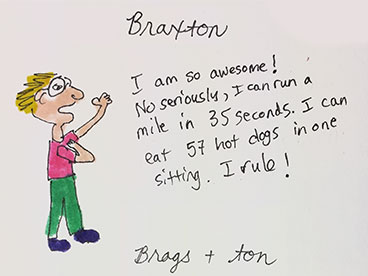 Braxton
I am so awesome!
No seriously, I can run a
mile in 35 seconds. I can
eat 57 hot dogs in one
sitting. I rule!
Brags + ton